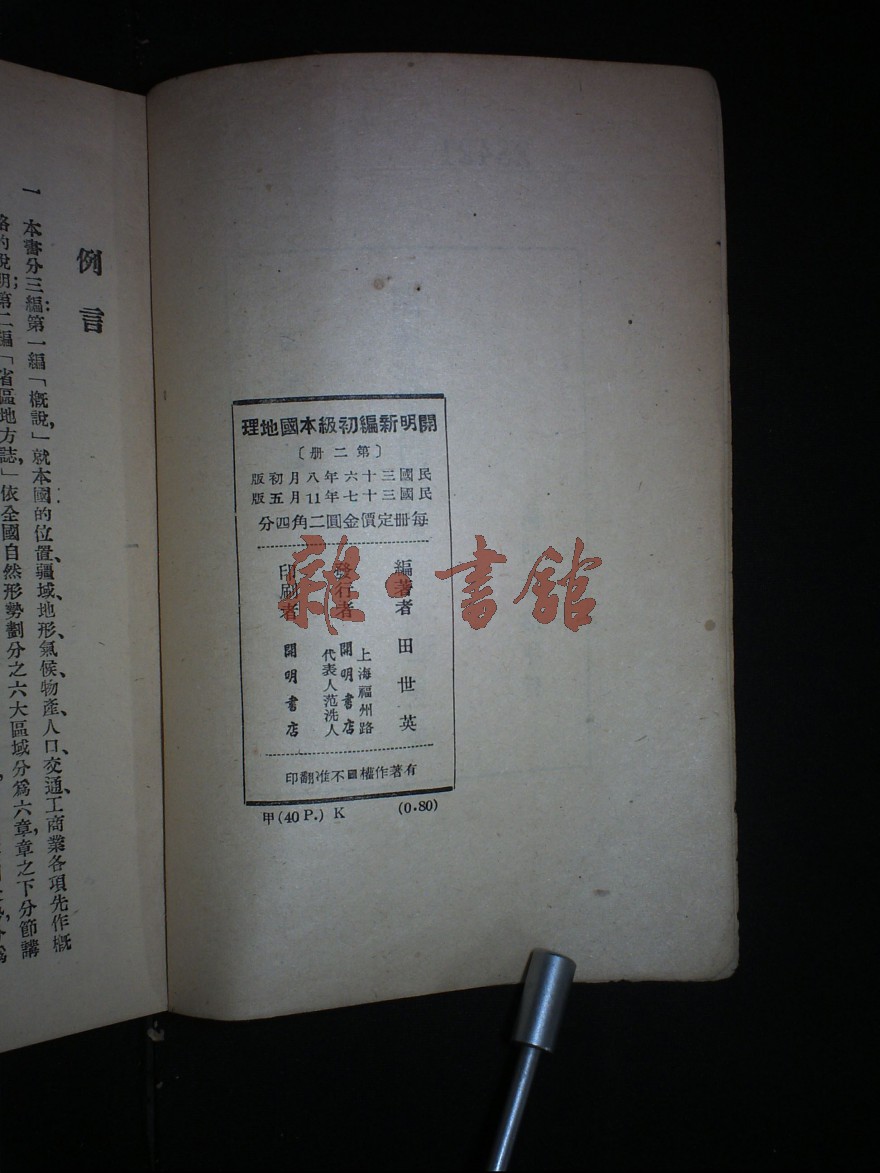 開明新編初級本國地理
〔第二冊〕
民國三十六年八月初版
民國三十七年11月五版
每冊定價金圓二角四分
編著者 田世英
發行者 上海福州路
開明書店
代表人范洗人
印刷者 開明書店
有著作權不准翻印
甲(40 P.) K (0.80)
雜·書館
例言
一 本書分三編:第一編「概說」,就本國的位置、疆域、地形、氣候、物產、人口、交通、工商業各項先作概
略的說明;第二編「省區地方誌」,依全國自然形勢劃分之六大區域分爲六章,章之下分節講